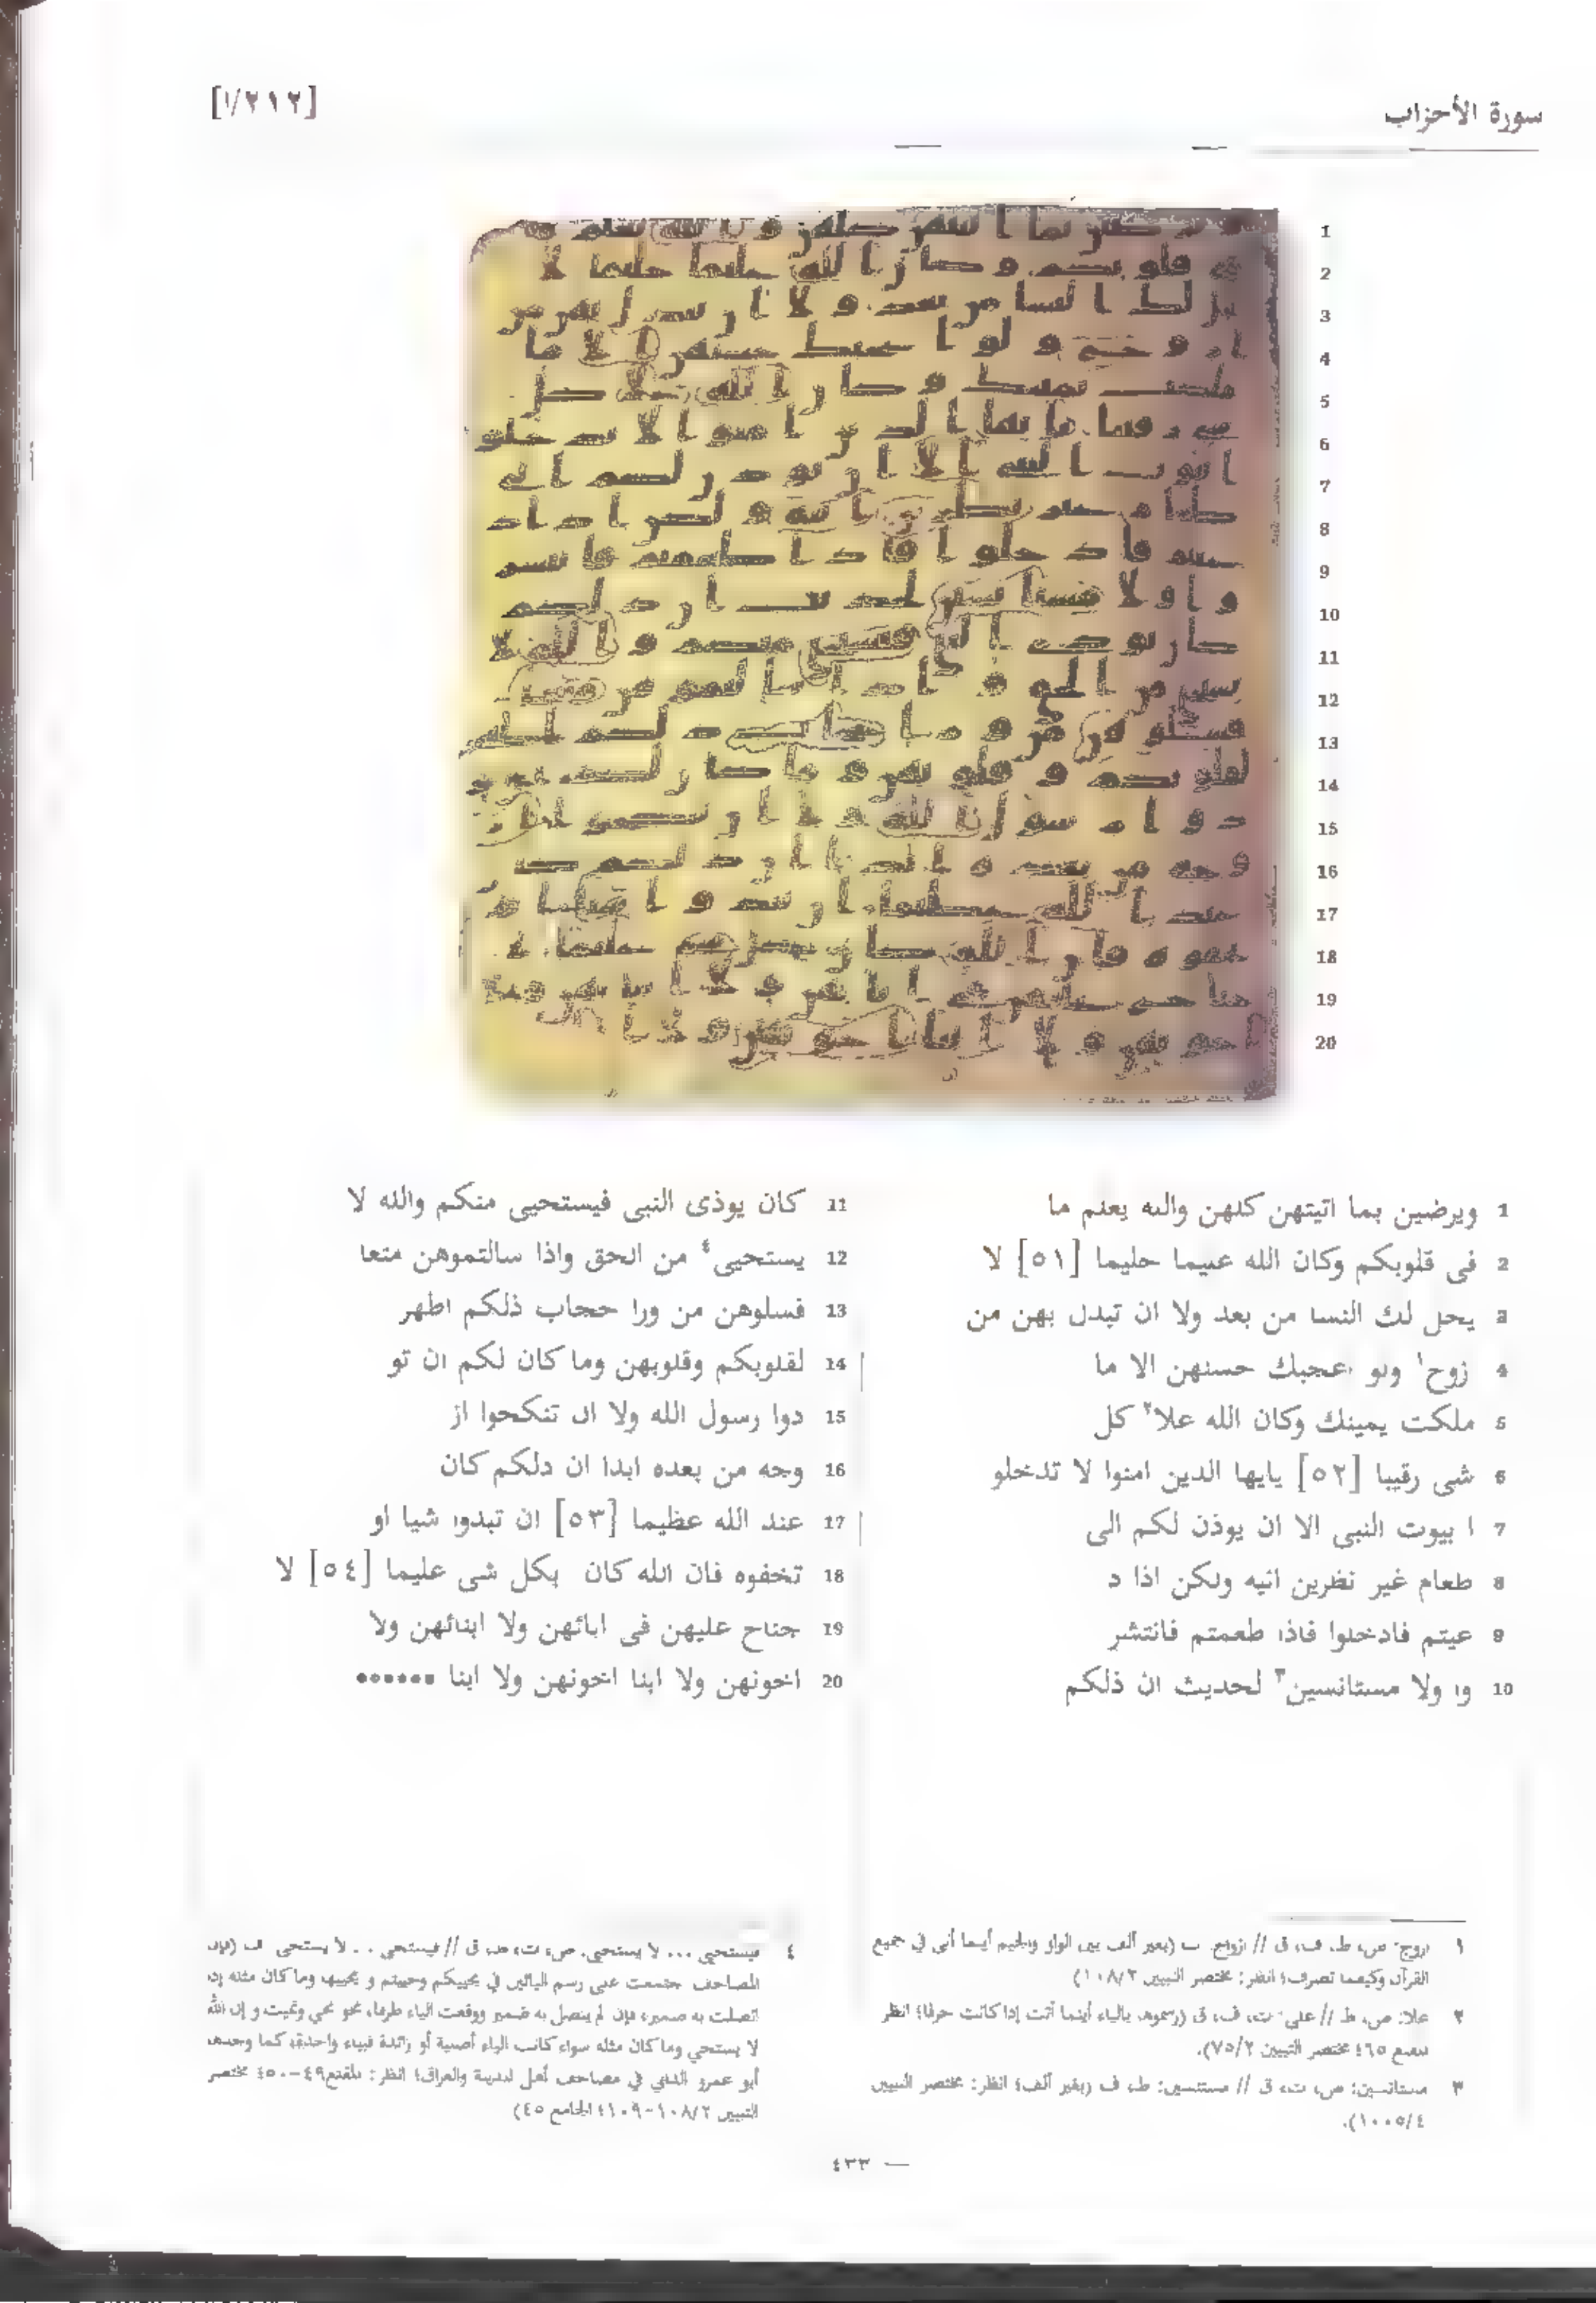 سورة الأحزاب
[٢١٢/ا]
1
2
3
4
5
6
7
8
9
10
11
12
13
14
15
16
17
18
19
20
1 ويرضين بما اتيتهن كلهن والله يعلم ما
2 فى قلوبكم وكان الله عليما حليما [٥١] لا
3 يحل لك النسا من بعد ولا ان تبدل بهن من
4 زوح١ ولو اعجبك حسنهن الا ما
5 ملكت يمينك وكان الله علا٢ كل
6 شى رقيبا [٥٢] يايها الدين امنوا لا تدخلو
7 ا بيوت النبى الا ان يوذن لكم الى
8 طعام غير نظرين انيه ولكن اذا د
9 عيتم فادخلوا فاذا طعمتم فانتشر
10 وا ولا مستانسين٣ لحديث ان ذلكم
11 كان يوذى النبى فيستحيى منكم والله لا
12 يستحيى٤ من الحق واذا سالتموهن متعا
13 فسلوهن من ورا حجاب ذلكم اطهر
14 لقلوبكم وقلوبهن وما كان لكم ان تو
15 دوا رسول الله ولا ان تنكحوا از
16 وجه من بعده ابدا ان دلكم كان
17 عند الله عظيما [٥٣] ان تبدوا شيا او
18 تخفوه فان الله كان بكل شى عليما [٥٤] لا
19 جناح عليهن فى ابائهن ولا ابنائهن ولا
20 اخونهن ولا ابنا اخونهن ولا ابنا ••••••
١ ازوج: ص، ط، ف، ق // ازواج: ت (بغير ألف بين الواو والجيم أينما أتى في جميع
القرآن وكيفما تصرف؛ انظر: مختصر التبيين ١٠٨/٢)
٢ علا: ص، ط // على: ت، ف، ق (رسموه بالياء أينما أتت إذا كانت حرفا؛ انظر
المقنع ٤٦٥ مختصر التبيين ٧٥/٢).
٣ مستانسين: ص، ت، ق // مستنسين: ط، ف (بغير ألف؛ انظر: مختصر التبيين
١٠٠٥/٤).
٤ فيستحيي ... لا يستحيي: ص، ت، ط، ق // فيستحى ... لا يستحى: ف (فإن
المصاحف اجتمعت على رسم اليائين في يحييكم وحييتم و يحييها وما كان مثله إذا
اتصلت به ضمير، فإن لم يتصل به ضمير ووقعت الياء طرفا، نحو نحي ونميت و إن الله
لا يستحي وما كان مثله سواء كانت الياء أصلية أو زائدة فبياء واحدة، كما وجدها
أبو عمرو الداني في مصاحف أهل المدينة والعراق؛ انظر: المقنع ٤٩-٤٥٠ مختصر
التبيين ١٠٨/٢-١٠٩؛ الجامع ٤٥)
— ٤٣٣